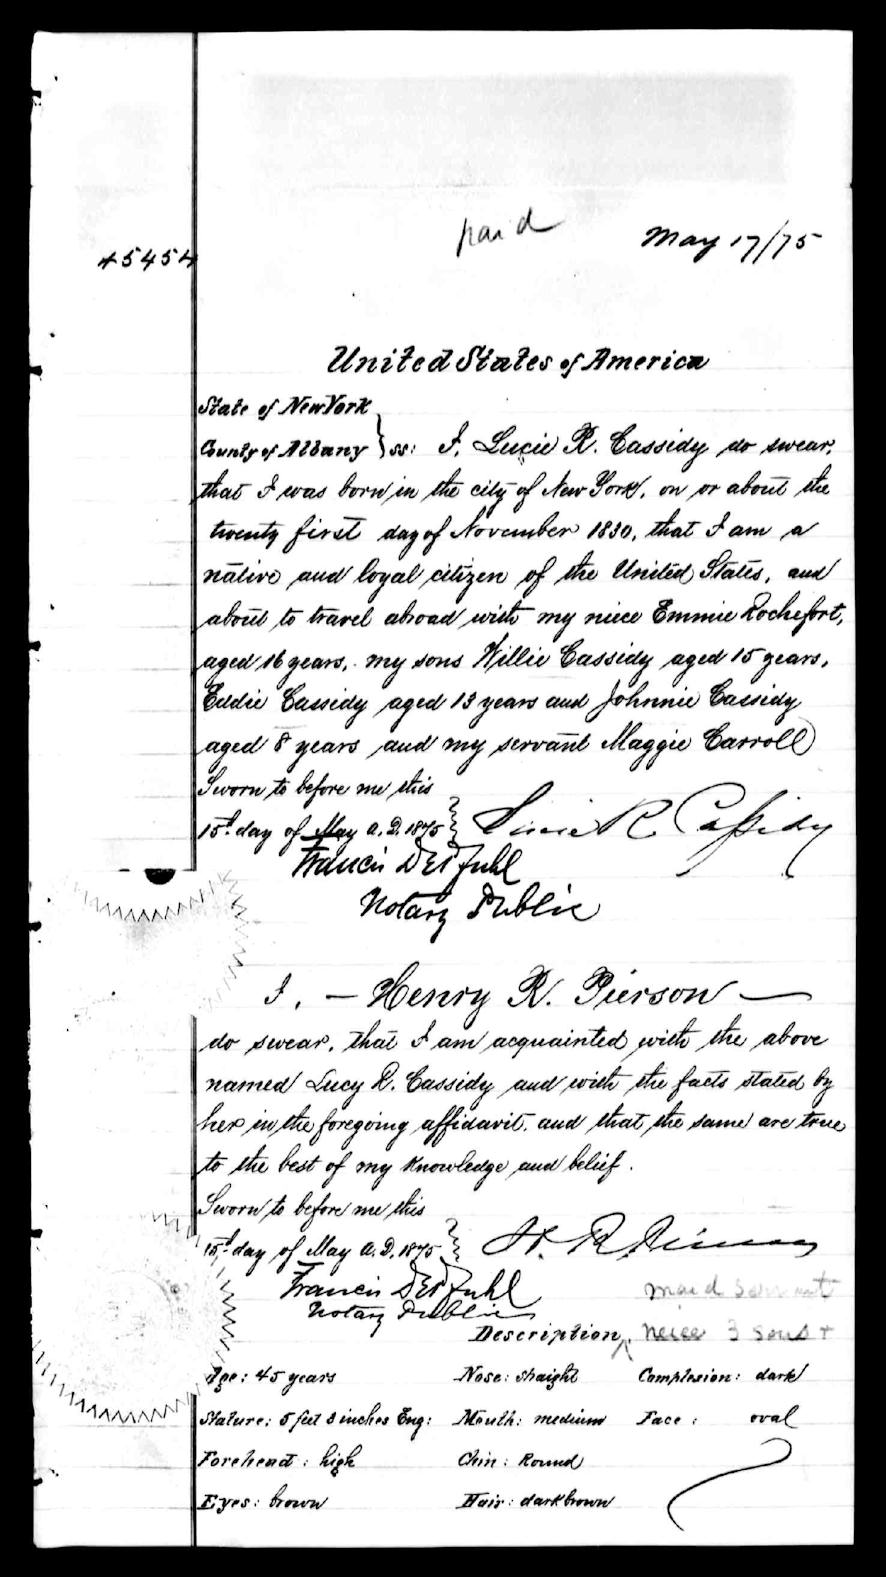 paid
May 17/75
45454
United States of America
State of New York
County of Albany } ss: I, Lucie R. Cassidy do swear,
that I was born in the city of New York, on or about the
twenty first day of November 1830, that I am a
native and loyal citizen of the United States, and
about to travel abroad with my niece Emmie Rochefort,
aged 16 years, my sons Willie Cassidy aged 15 years,
Eddie Cassidy aged 13 years and Johnnie Cassidy
aged 8 years and my servant Maggie Carroll
Sworn to before me this
15th day of May A.D. 1875 } Lucie R. Cassidy
Francis
Notary Public
I, — Henry R. Pierson —
do swear, that I am acquainted with the above
named Lucy R. Cassidy and with the facts stated by
her in the foregoing affidavit, and that the same are true
to the best of my knowledge and belief.
Sworn to before me this
15th day of May A.D. 1875 } H. R. Pierson
Francis
Notary Public
maid servant
Description, neice 3 sons +
Age: 45 years Nose: straight Complexion: dark
Stature: 5 feet 3 inches Eng: Mouth: medium Face: oval
Forehead: high Chin: Round
Eyes: brown Hair: dark brown